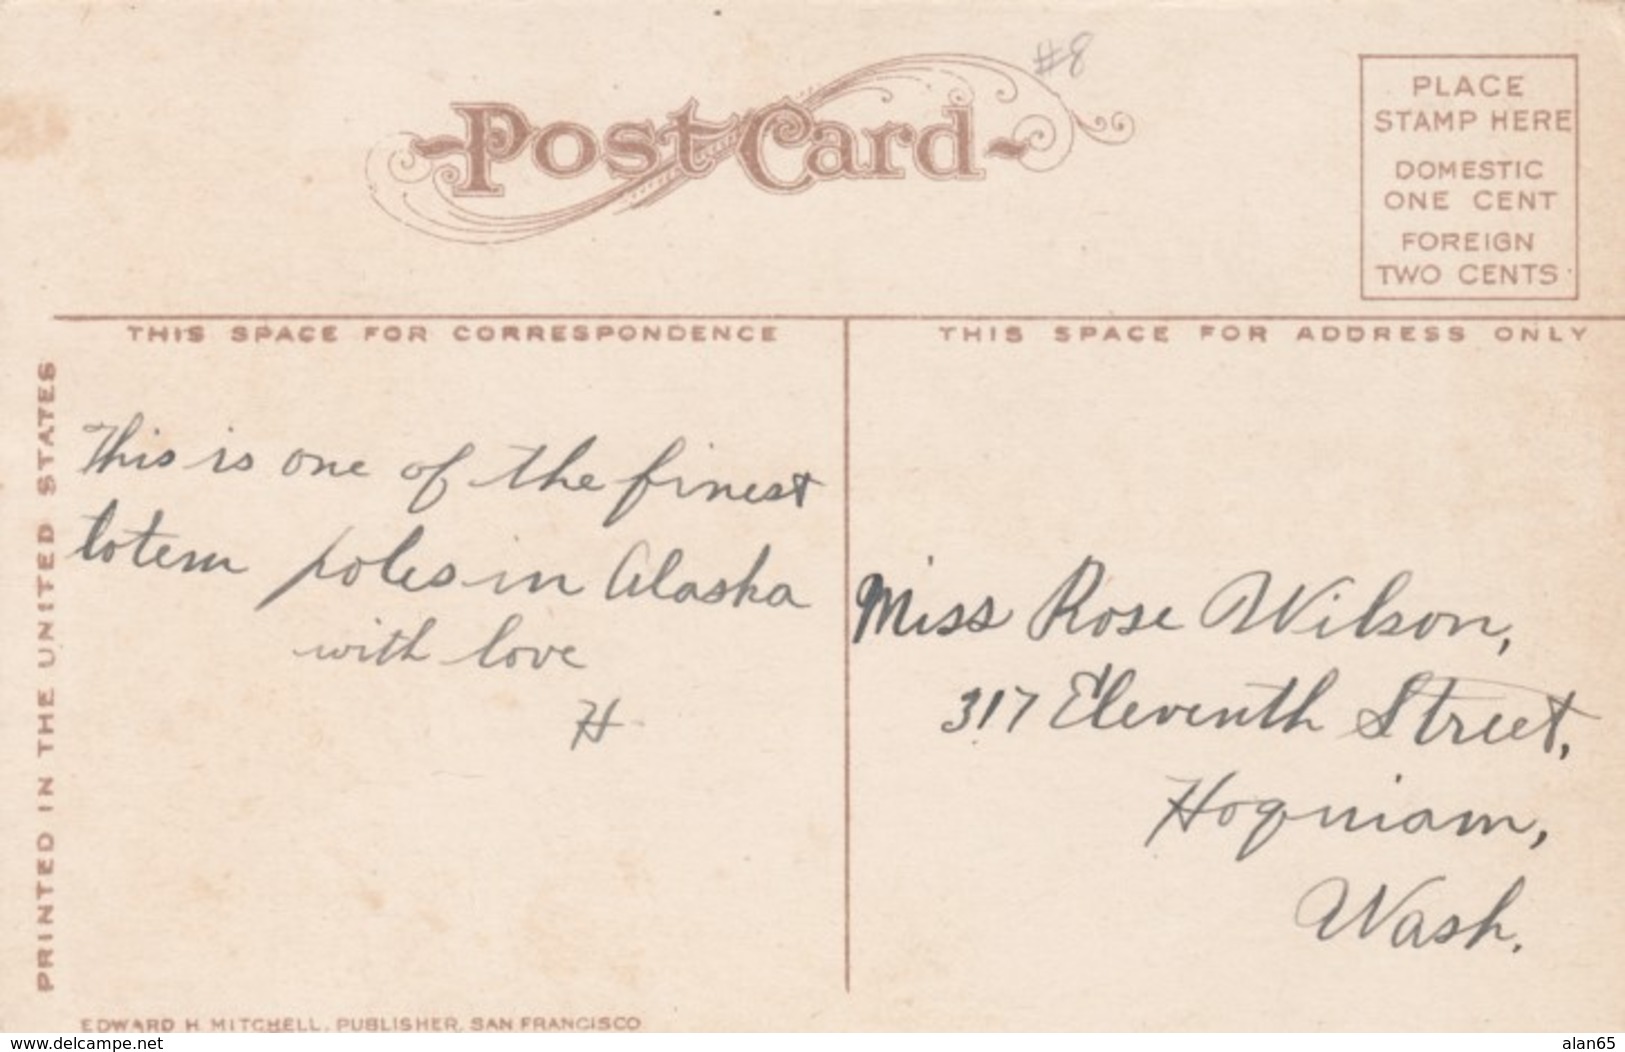 #8
Post Card
PLACE
STAMP HERE
DOMESTIC
ONE CENT
FOREIGN
TWO CENTS
THIS SPACE FOR CORRESPONDENCE
THIS SPACE FOR ADDRESS ONLY
PRINTED IN THE UNITED STATES
This is one of the finest
totem poles in Alaska
with love
H
Miss Rose Wilson,
317 Eleventh Street,
Hoquiam,
Wash.
EDWARD H. MITCHELL, PUBLISHER, SAN FRANCISCO
www.delcampe.net
alan65